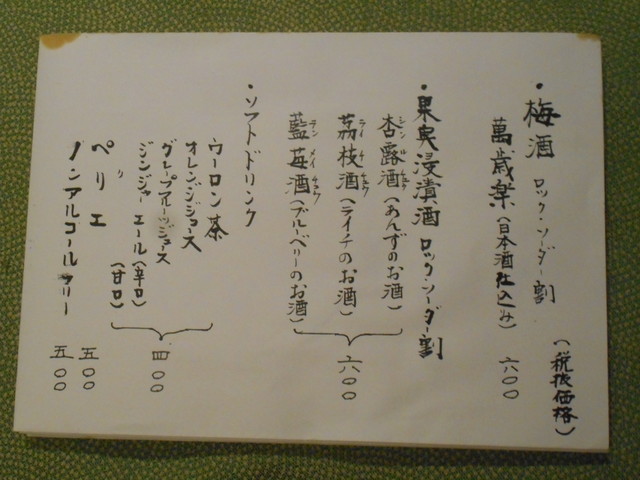 (税抜価格)
・梅酒 ロック・ソーダー割
萬歳楽(日本酒仕込み) 六〇〇
・果実浸漬酒 ロック・ソーダー割
杏露酒(あんずのお酒)
シンルチュウ
茘枝酒(ライチのお酒) 六〇〇
ライチチュウ
藍苺酒(ブルーベリーのお酒)
ランメイチュウ
・ソフトドリンク
ウーロン茶
オレンジジュース
グレープフルーツジュース 四〇〇
ジンジャーエール(辛口)
〃 (甘口)
ペリエ 五〇〇
ノンアルコールフリー 五〇〇